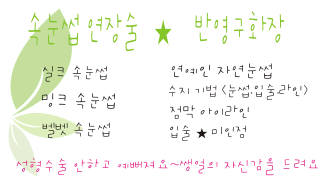 속눈썹 연장술 ★ 반영구화장
실크 속눈썹
밍크 속눈썹
벨벳 속눈썹
연예인 자연눈썹
수지 기법 (눈썹,입술,라인)
점막 아이라인
입술 ★ 미인점
성형수술 안하고 예뻐져요~쌩얼의 자신감을 드려요